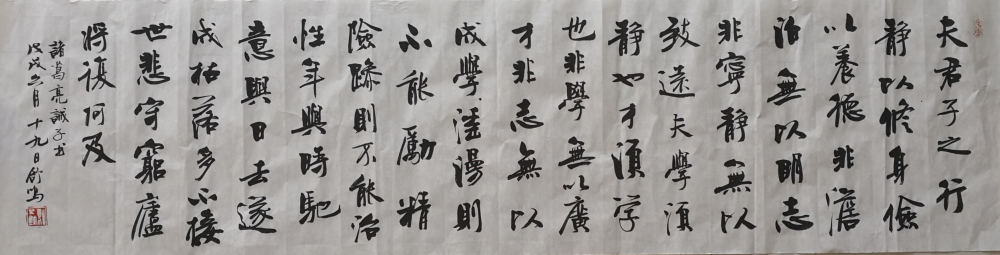 夫君子之行
静以修身儉
以養德非澹
泊無以明志
非寧静無以
致遠夫學須
静也才須学
也非學無以廣
才非志無以
成學滛漫則
不能勵精
險躁則不能治
性年與時馳
意與日去遂
成枯落多不接
世悲守窮廬
將復何及
諸葛亮誡子书
戊戌六月十九日